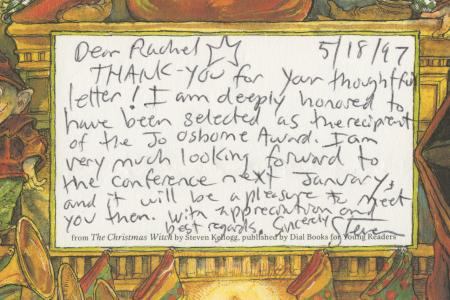 Dear Rachel 5/18/97
THANK-YOU for your thoughtful
letter! I am deeply honored to
have been selected as the recipient
of the Jo Osborne Award. I am
very much looking forward to
the conference next January,
and it will be a pleasure to meet
you then. With appreciation and
best regards. Sincerely Steve
from The Christmas Witch by Steven Kellogg, published by Dial Books for Young Readers